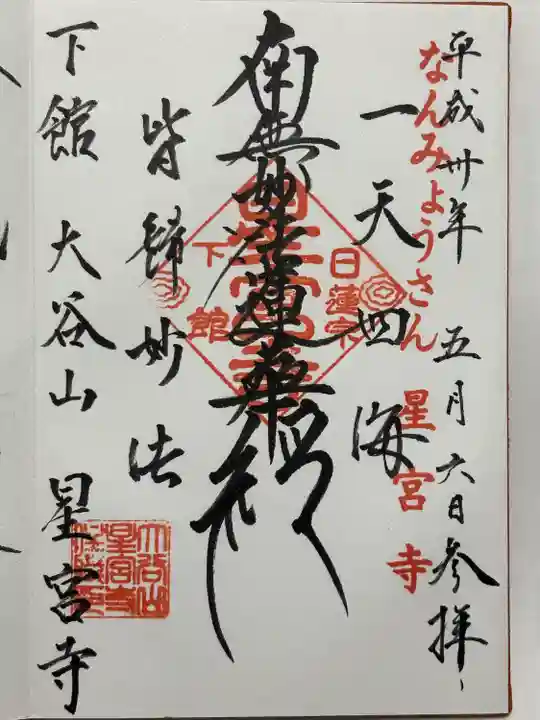 平成卅年 五月六日参拝
なんみょうさん 星宮寺
一天四海
南無妙法蓮華経
皆歸妙法
日蓮宗
下館
下館 大谷山 星宮寺
大谷山
星宮寺